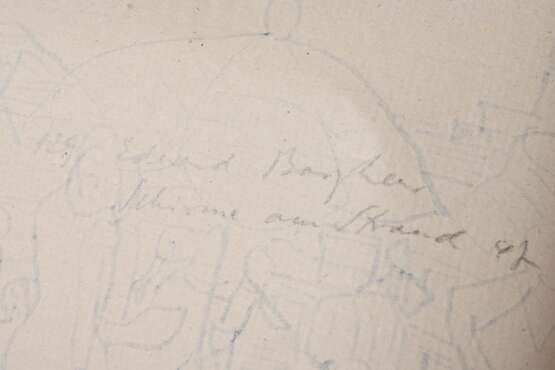 139 Eduard Bargheer
Schirme am Strand 42